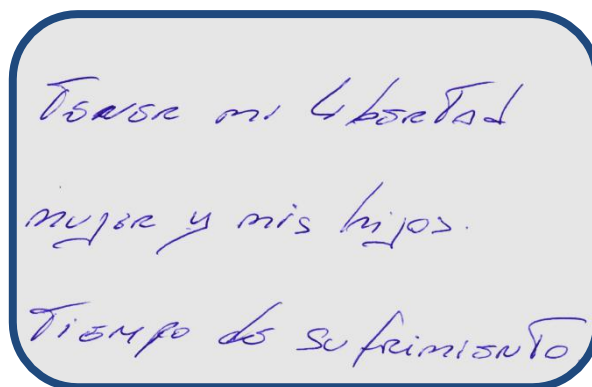 Tener mi libertad
mujer y mis hijos.
Tiempo de sufrimiento